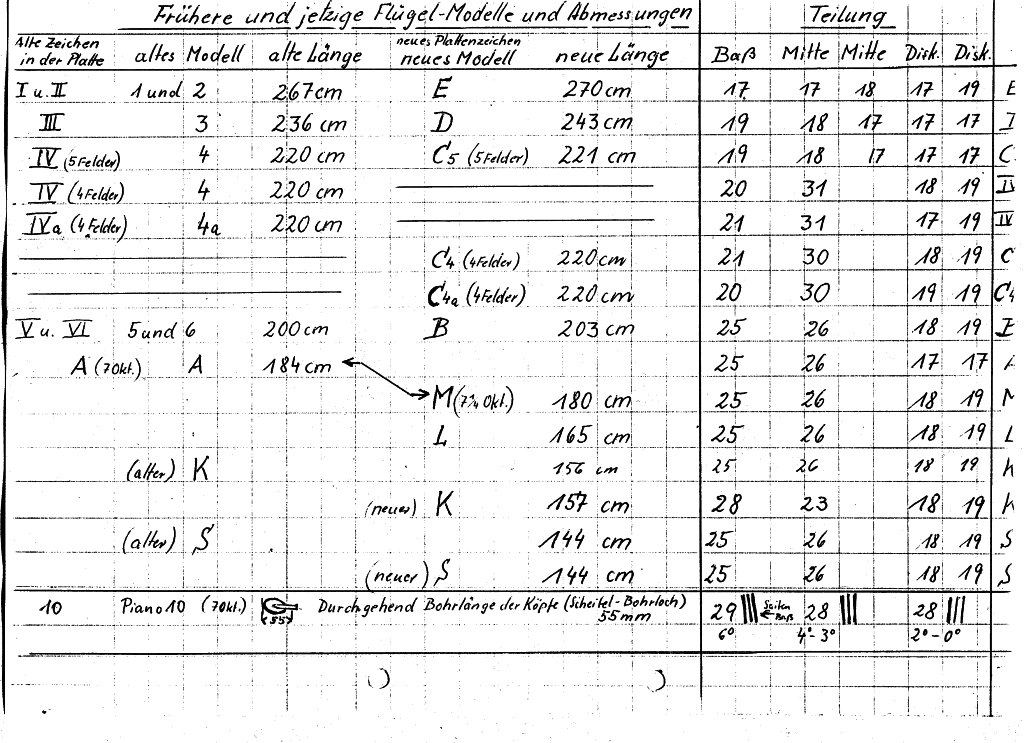 Frühere und jetzige Flügel-Modelle und Abmessungen Teilung
Alte Zeichen in der Platte altes Modell alte Länge neues Plattenzeichen neues Modell neue Länge Baß Mitte Mitte Disk. Disk.
I u. II 1 und 2 267 cm E 270 cm 17 17 18 17 19 E
III 3 236 cm D 243 cm 19 18 17 17 17
IV (5 Felder) 4 220 cm C5 (5 Felder) 221 cm 19 18 17 17 17 C
IV (4 Felder) 4 220 cm 20 31 18 19 IV
IVa (4 Felder) 4a 220 cm 21 31 17 19 IV
C4 (4 Felder) 220 cm 21 30 18 19 C
C4a (4 Felder) 220 cm 20 30 19 19 C4
V u. VI 5 und 6 200 cm B 203 cm 25 26 18 19 B
A (7 Okt.) A 184 cm 25 26 17 17
M (7¼ Okt.) 180 cm 25 26 18 19 M
L 165 cm 25 26 18 19 L
(alter) K 156 cm 25 26 18 19 K
(neuer) K 157 cm 28 23 18 19 K
(alter) S 144 cm 25 26 18 19 S
(neuer) S 144 cm 25 26 18 19 S
10 Piano 10 (7 Okt.) (55) Durchgehend Bohrlänge der Köpfe (Scheitel-Bohrloch) 29 Saiten Baß 28 28
55 mm 6° 4°-3° 2°-0°